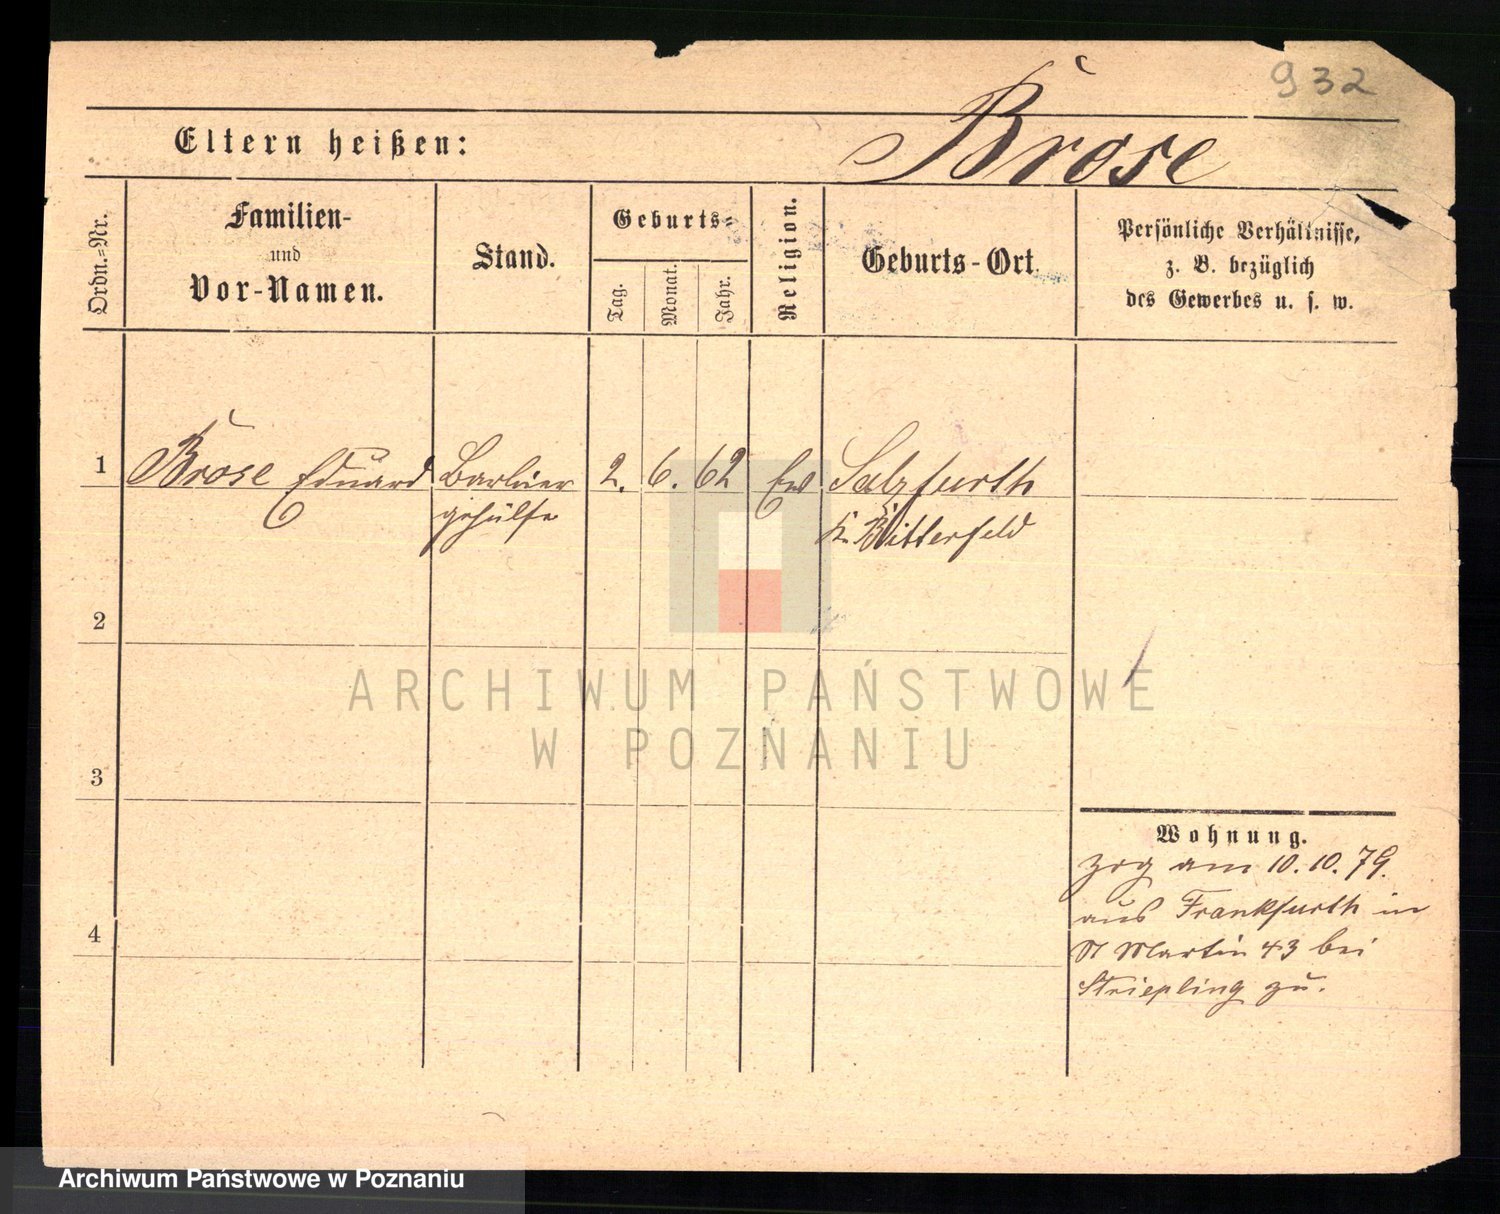 932
Eltern heißen:
Brose
Ordn.-Nr.
Familien-
und
Vor-Namen.
Stand.
Geburts-
Tag.
Monat.
Jahr.
Religion.
Geburts-Ort.
Persönliche Verhältnisse,
z. B. bezüglich
des Gewerbes u. s. w.
1
Brose Eduard
Barbier
gehülfe
2. 6. 62
Ev
Salzfurth
K. Bitterfeld
2
3
4
Wohnung.
zog am 10. 10. 79.
aus Frankfurth in
St Martin 43 bei
Striepling zu.
ARCHIWUM PAŃSTWOWE
W POZNANIU
Archiwum Państwowe w Poznaniu